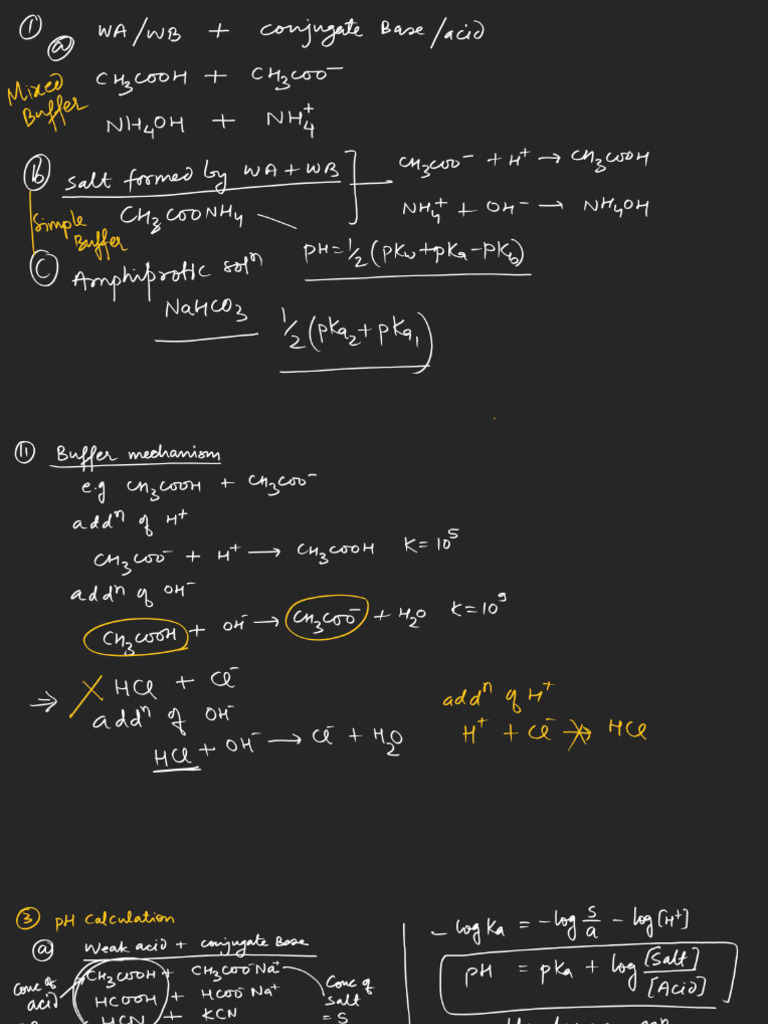 ① ⓐ WA/WB + Conjugate Base/acid
Mixed Buffer
CH₃COOH + CH₃COO⁻
NH₄OH + NH₄⁺
ⓑ Salt formed by WA + WB
CH₃COO⁻ + H⁺ → CH₃COOH
NH₄⁺ + OH⁻ → NH₄OH
Simple Buffer
CH₃COONH₄
pH = 1/2 (pKw + pKa - pKb)
Ⓒ Amphiprotic solⁿ
NaHCO₃
1/2 (pKa₂ + pKa₁)
⑪ Buffer mechanism
e.g CH₃COOH + CH₃COO⁻
addⁿ of H⁺
CH₃COO⁻ + H⁺ → CH₃COOH K = 10⁵
addⁿ of OH⁻
CH₃COOH + OH⁻ → CH₃COO⁻ + H₂O K = 10⁹
⇒ X HCl + Cl⁻
addⁿ of OH⁻
HCl + OH⁻ → Cl⁻ + H₂O
addⁿ of H⁺
H⁺ + Cl⁻ ↛ HCl
③ pH Calculation
ⓐ Weak acid + conjugate Base
Conc of acid
CH₃COOH + CH₃COO⁻Na⁺
HCOOH + HCOO⁻Na⁺
HCN + KCN
Conc of salt = S
- log Ka = - log s/a - log [H⁺]
pH = pKa + log [Salt]/[Acid]